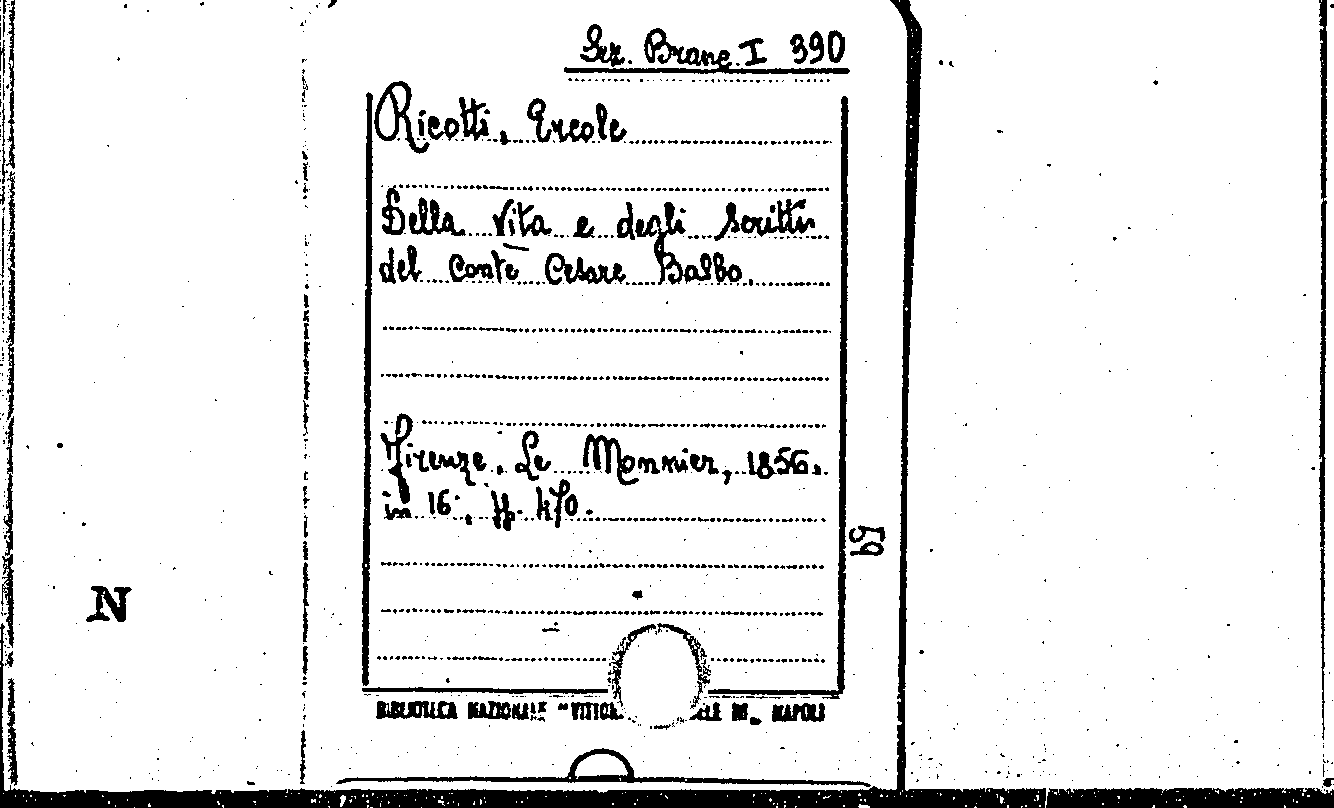 Sez. Branc. I 390
Ricotti, Ercole
Della Vita e degli scritti
del Conte Cesare Balbo.
Firenze, Le Monnier, 1856.
in 16°, pp. 470.
69
N
BIBLIOTECA NAZIONALE "VITTOR ELE III„ NAPOLI